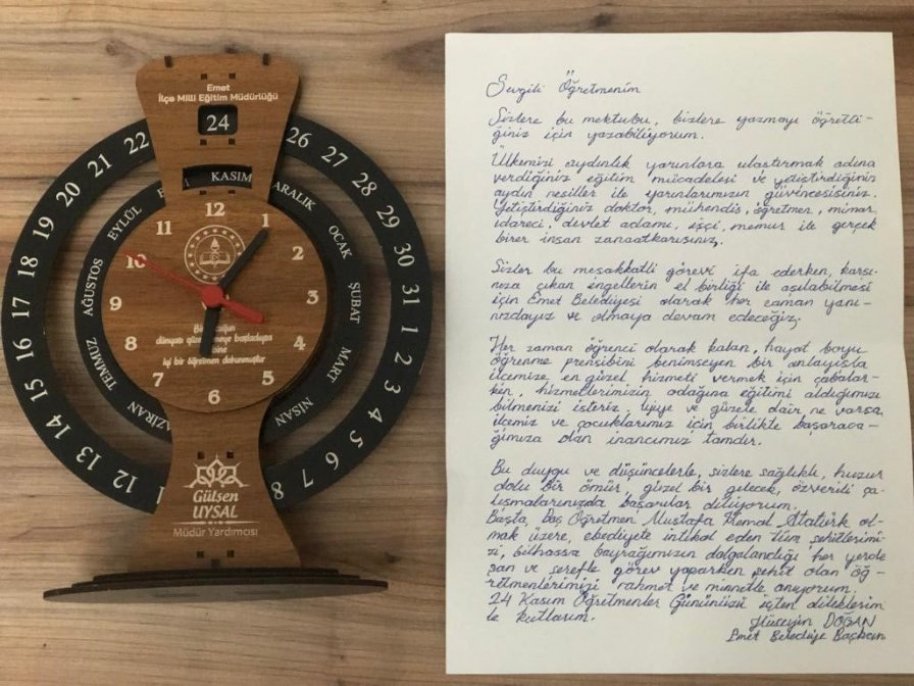 Emet
İlçe Milli Eğitim Müdürlüğü
24
KASIM
ARALIK
OCAK
ŞUBAT
MART
NİSAN
AZİRAN
TEMMUZ
AĞUSTOS
EYLÜL
26
27
28
29
30
31
1
2
3
4
5
6
7
8
11
12
13
14
15
16
17
18
19
20
21
22
12
1
2
3
4
5
6
7
8
9
10
11
dünyası
iyi bir öğretmen dokunmuştur
Gülşen
UYSAL
Müdür Yardımcısı
Sevgili Öğretmenim
Sizlere bu mektubu, bizlere yazmayı öğretti-
ğiniz için yazabiliyorum.
Ülkemizi aydınlık yarınlara ulaştırmak adına
verdiğiniz eğitim mücadelesi ve yetiştirdiğinin
aydın nesiller ile yarınlarımızın güvencesisiniz.
Yetiştirdiğiniz doktor, mühendis, öğretmen, mimar,
idareci, devlet adamı, işçi, memur ile gerçek
birer insan zanaatkarısınız.
Sizler bu meşakkatli görevi ifa ederken, karşı-
nıza çıkan engellerin el birliği ile aşılabilmesi
için Emet Belediyesi olarak her zaman yanı-
nızdayız ve olmaya devam edeceğiz.
Her zaman öğrenci olarak kalan, hayat boyu
öğrenme prensibini benimseyen bir anlayışla
ilçemize en güzel hizmeti vermek için çabalar-
ken, hizmetlerimizin odağına eğitimi aldığımızı
bilmenizi isteriz. İyiye ve güzele dair ne varsa
ilçemiz ve çocuklarımız için birlikte başaraca-
ğımıza olan inancımız tamdır.
Bu duygu ve düşüncelerle, sizlere sağlıklı, huzur
dolu bir ömür, güzel bir gelecek, özverili ça-
lışmalarınızda başarılar diliyorum.
Başta, Baş Öğretmen Mustafa Kemal Atatürk ol-
mak üzere, ebediyete intikal eden tüm şehitlerimi-
zi, bilhassa bayrağımızın dalgalandığı her yerde
şan ve şerefle görev yaparken şehit olan öğ-
retmenlerimizi rahmet ve minnetle anıyorum.
24 Kasım Öğretmenler Gününüzü içten dileklerim
le kutlarım.
Hüseyin DOĞAN
Emet Belediye Başkanı